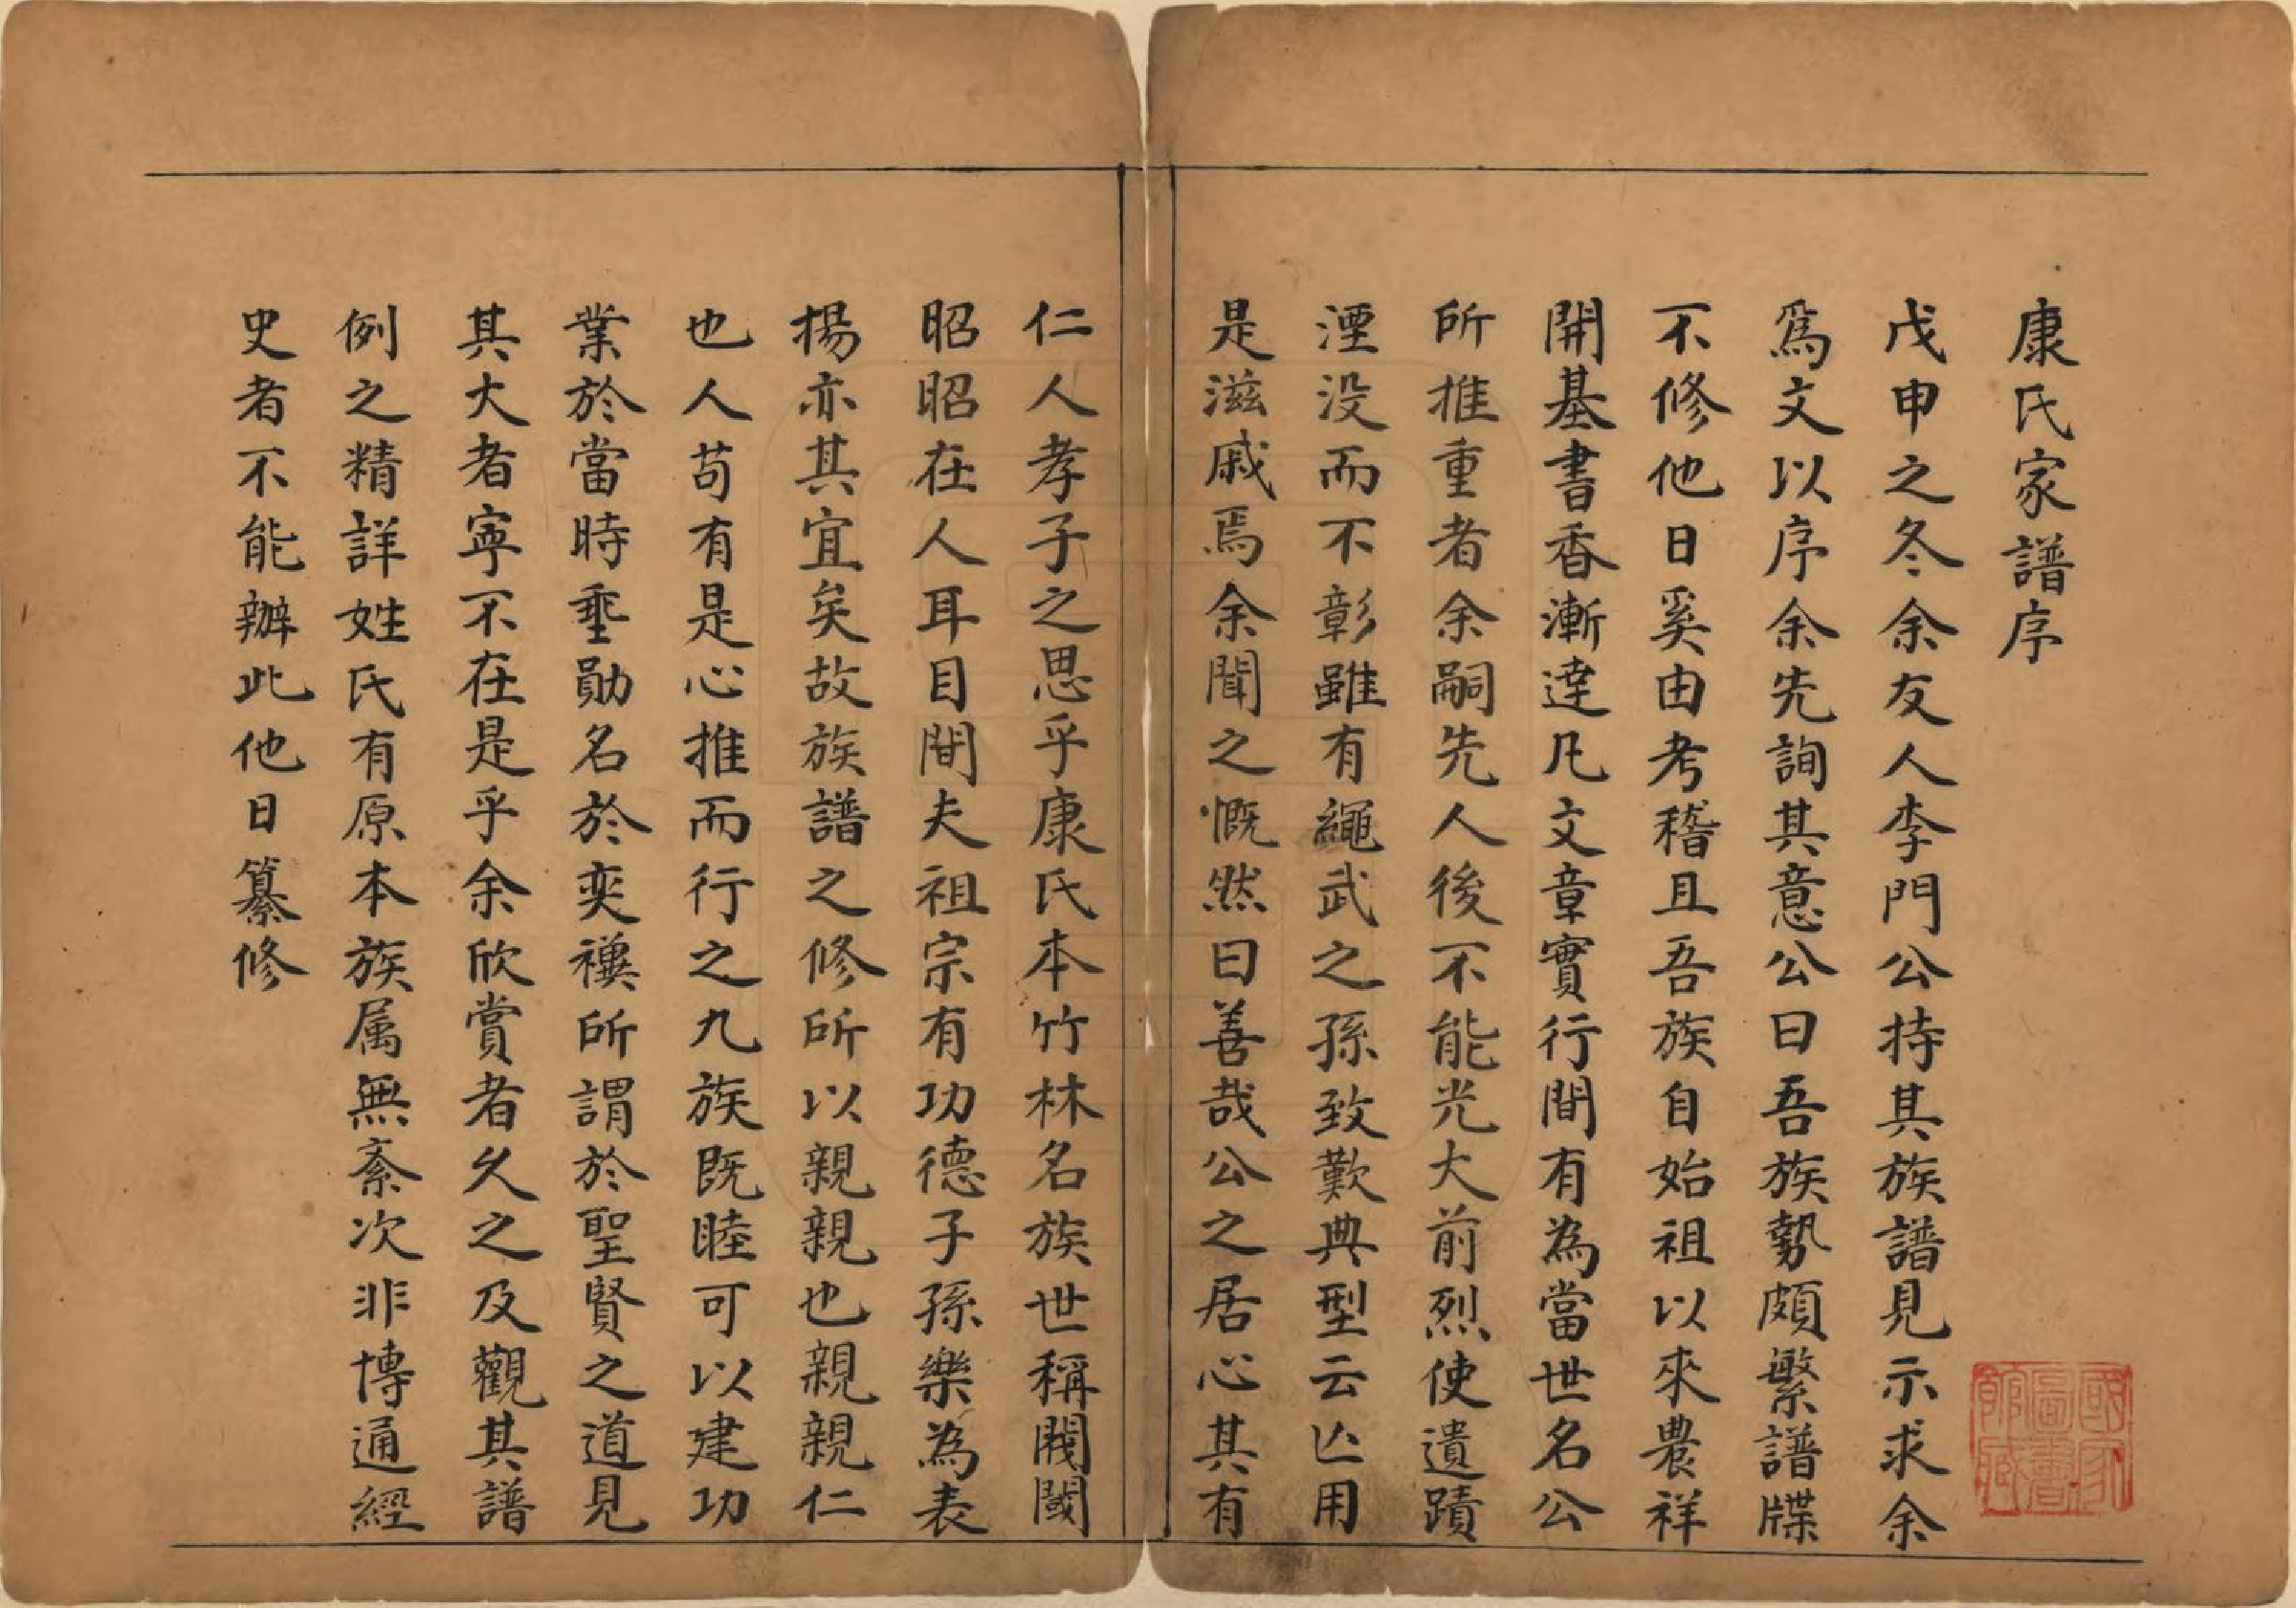 康氏家譜序
戊申之冬余友人李門公持其族譜見示求余
爲文以序余先詢其意公曰吾族勢頗繁譜牒
不修他日奚由考稽且吾族自始祖以來農祥
開基書香漸達凡文章實行間有為當世名公
所推重者余嗣先人後不能光大前烈使遺蹟
湮没而不彰雖有繩武之孫致歎典型云亾用
是滋戚焉余聞之慨然曰善哉公之居心其有
仁人孝子之思乎康氏本竹林名族世稱閥閱
昭昭在人耳目間夫祖宗有功德子孫樂為表
揚亦其宜矣故族譜之修所以親親也親親仁
也人苟有是心推而行之九族既睦可以建功
業於當時垂勛名於奕禩所謂於聖賢之道見
其大者寧不在是乎余欣賞者久之及觀其譜
例之精詳姓氏有原本族属無紊次非博通經
史者不能辦此他日纂修
國家圖書館藏